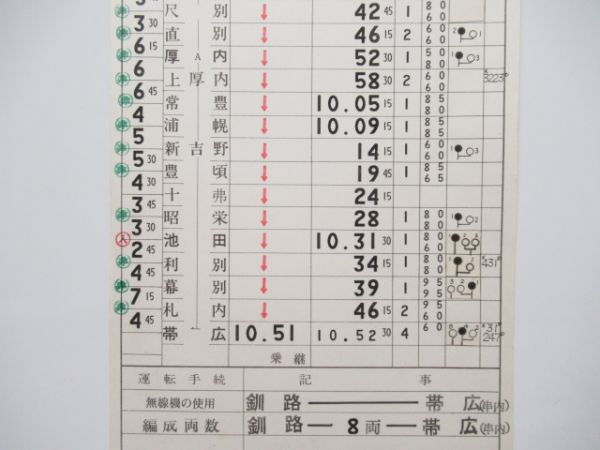 3 45 尺別 ↓ 42 45 1 80 60
3 30 直別 ↓ 46 15 2 60 60 2 1
6 15 厚内 ↓ 52 30 1 50 60 1 3
6 上厚内 ↓ 58 30 2 60 60 3223D
6 45 常豊 ↓ 10.05 15 1 80 65
4 浦幌 ↓ 10.09 15 1 80 65
5 新吉野 ↓ 14 15 1 60 60 1 3
5 30 豊頃 ↓ 19 45 1 80 65
4 30 十弗 ↓ 24 15
3 45 昭栄 ↓ 28 1 80 60 1 2
3 30 池田 ↓ 10.31 30 1 80 60
2 45 利別 ↓ 34 15 1 80 80 431D
4 45 幕別 ↓ 39 1 95 95
7 15 札内 ↓ 46 15 2 95 60
4 45 帯広 10.51 10.52 30 4 60 247D
乗継
運転手続 記事
無線機の使用 釧路 ― 帯広 (串内)
編成両数 釧路 ― 8両 ― 帯広 (串内)